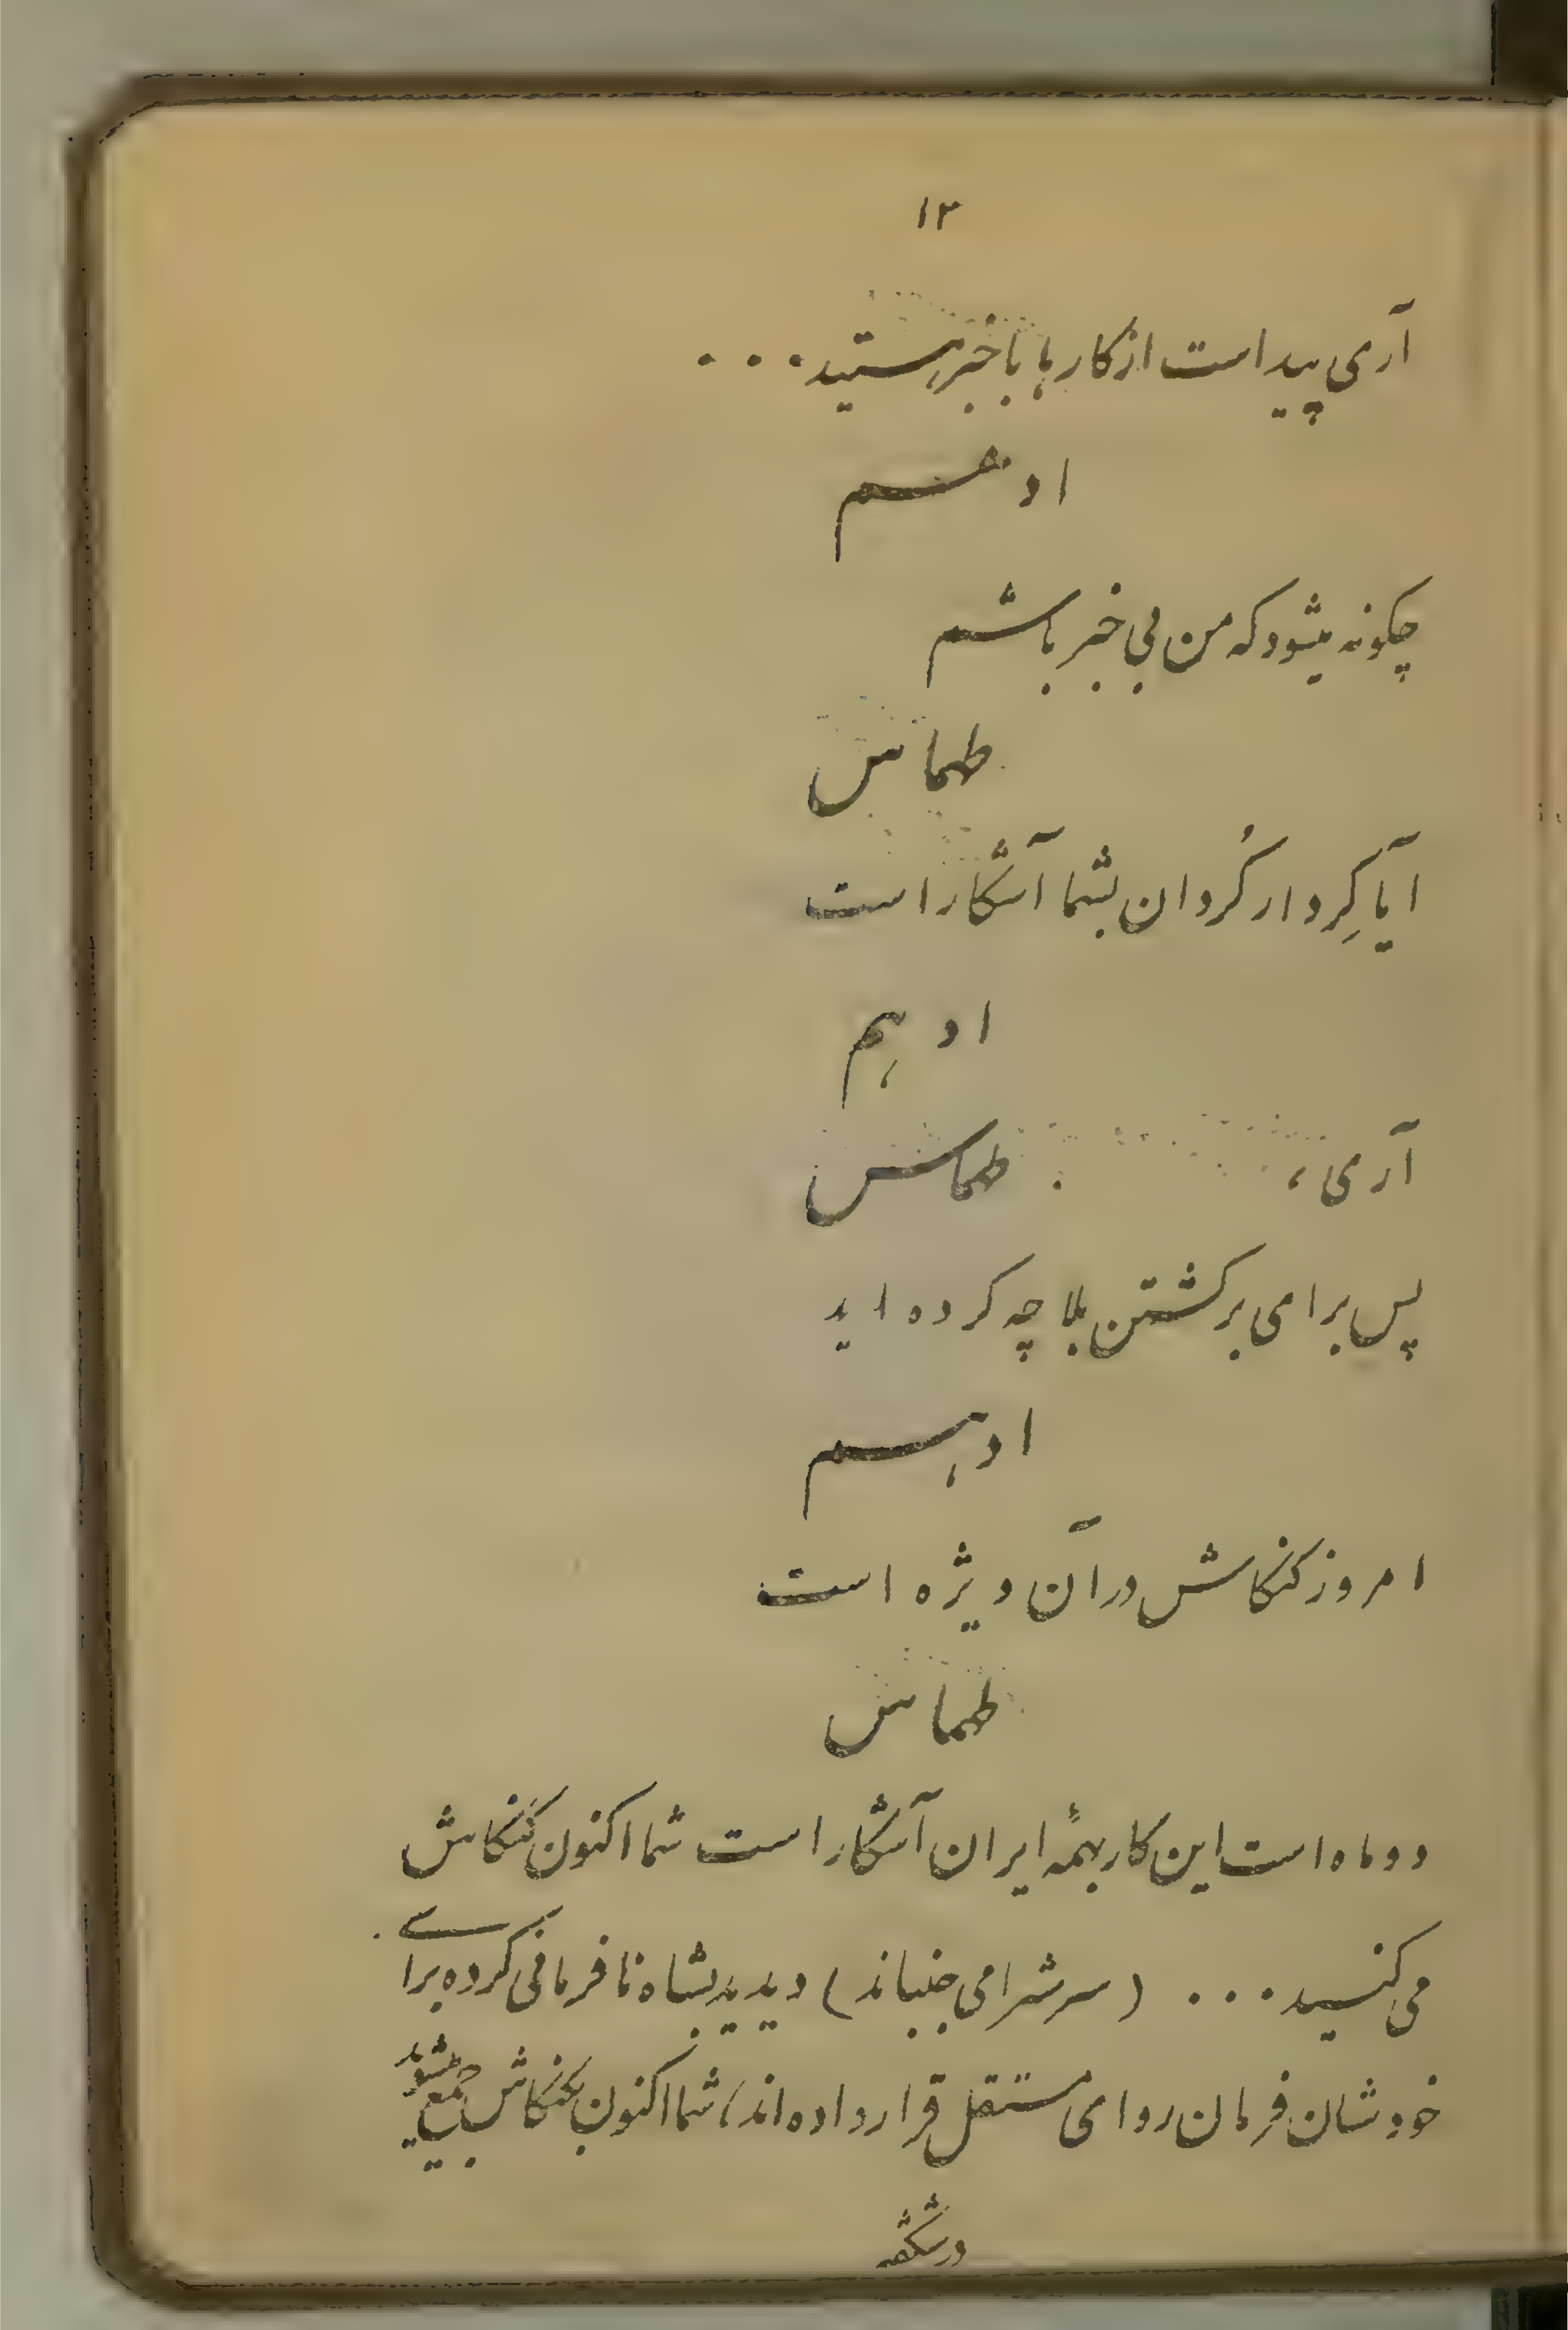 ۱۲
آری پیداست از کارها باخبر هستید...
ادهم
چکونه میشود که من بی خبر باشم
طهماس
ایا کِردار کُردان بشما آشکار است
ادهم
آری، طهماس
پس برای برکشتن بلا چه کرده اید
ادهم
امروز کنکاش در آن ویژه است
طهماس
دو ماه است این کار بهمهٔ ایران آشکار است شما اکنون کنکاش
می کنسید... (سرشرا می جنباند) دیدید بشاه نافرمانی کرده برای
خودشان فرمان روای مستقل قرار داده اند، شما اکنون بکنکاش جمع میشوید